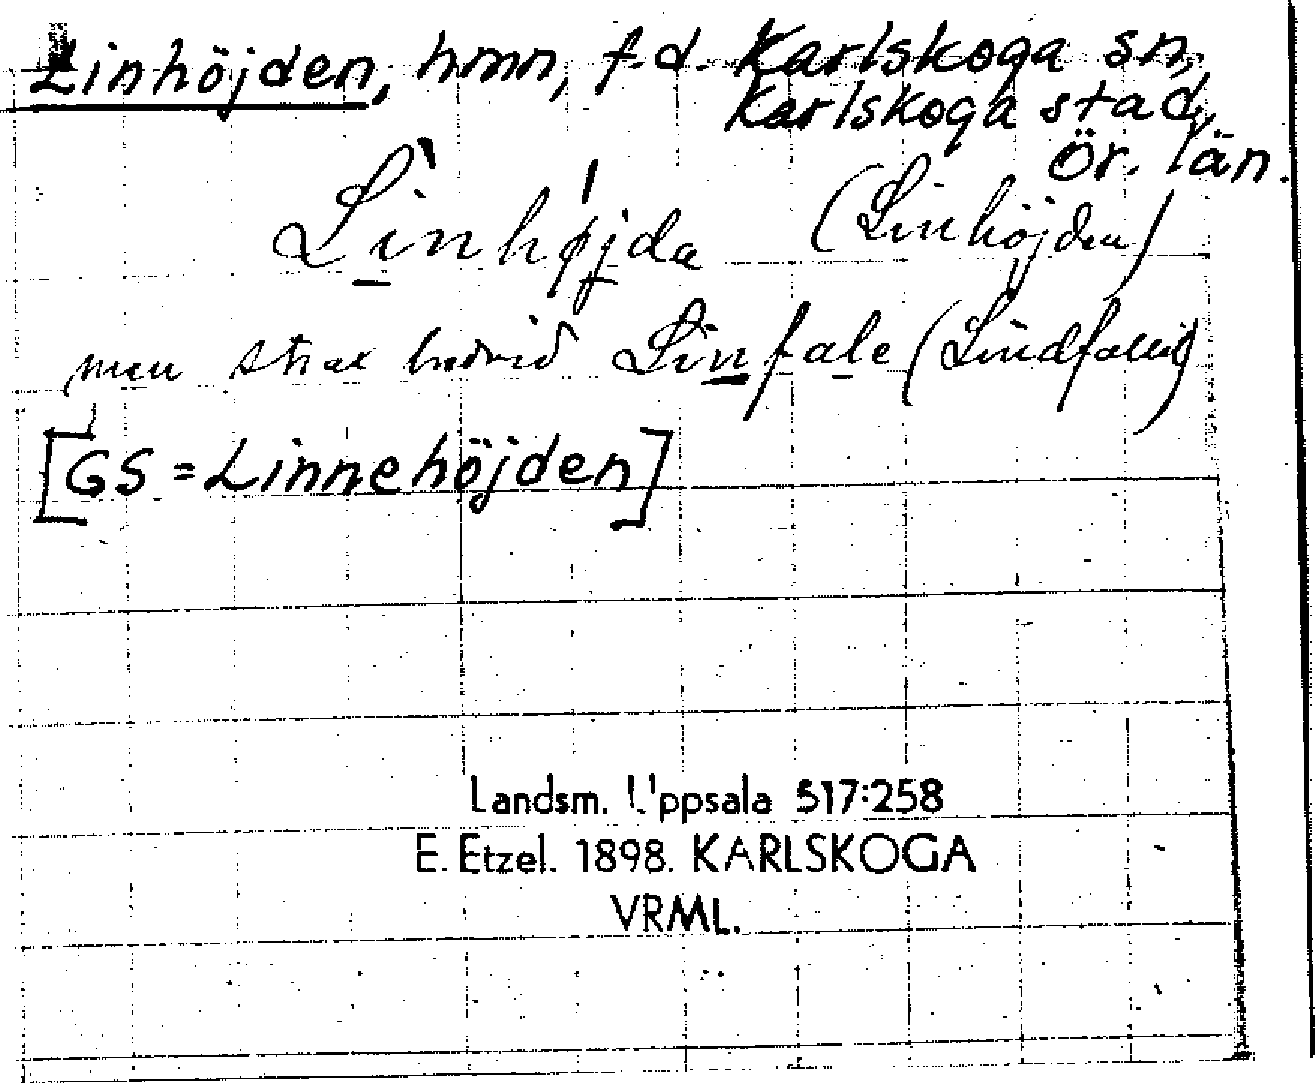 Linhöjden, hmn, f.d. Karlskoga sn,
Karlskoga stad,
Ör. län.
Linhøjda (Linhöjden)
men strax bredvid Linfale (Lindfallet)
[GS = Linnehöjden]
Landsm. Uppsala 517:258
E. Etzel. 1898. KARLSKOGA
VRML.